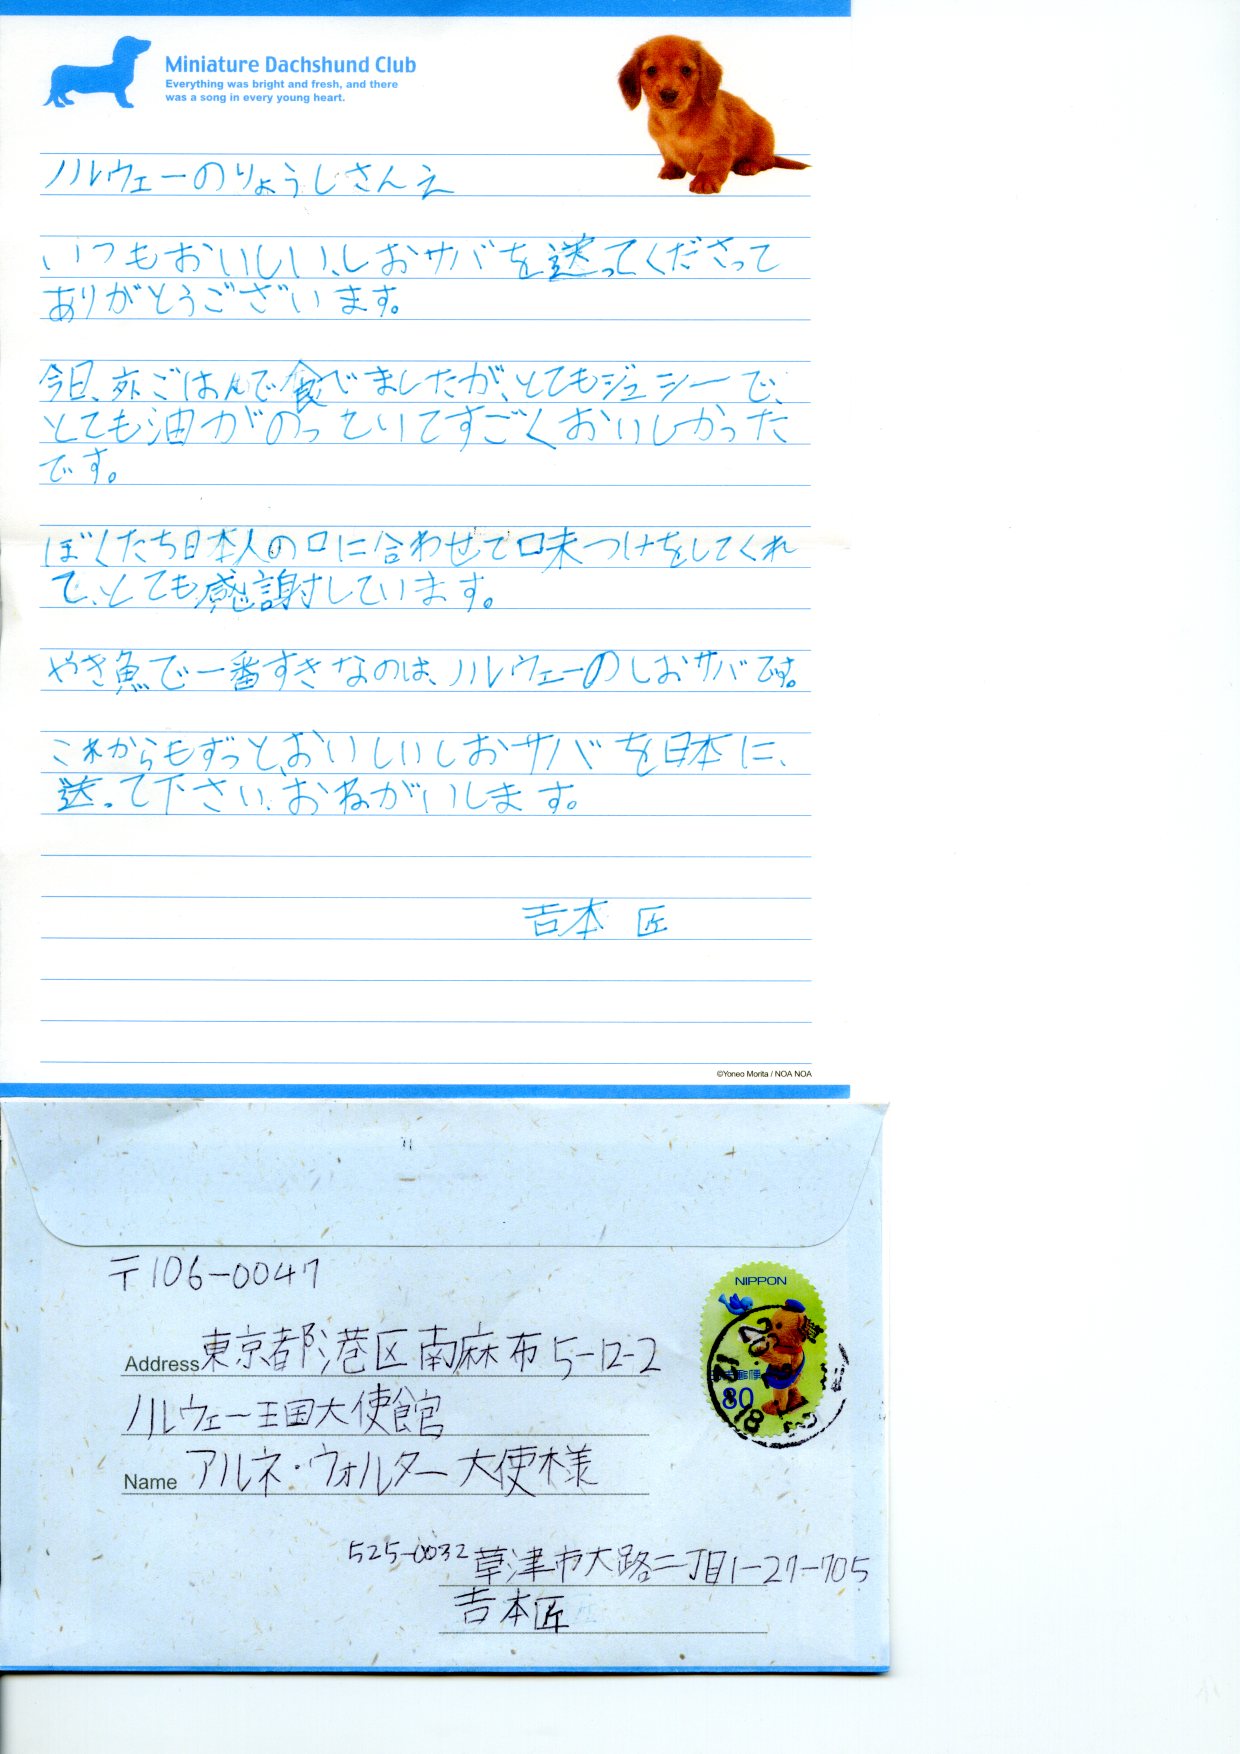 Miniature Dachshund Club
Everything was bright and fresh, and there
was a song in every young heart.
ノルウェーのりょうしさんえ
いつもおいしい、しおサバを送ってくださって
ありがとうございます。
今日、夜ごはんで食べましたが、とてもジューシーで、
とても油がのっていてすごくおいしかった
です。
ぼくたち日本人の口に合わせて味つけをしてくれ
て、とても感謝しています。
やき魚で一番すきなのは、ノルウェーのしおサバです。
これからもずっと、おいしいしおサバを日本に、
送って下さい。おねがいします。
吉本 匠
©Yoneo Morita / NOA NOA
〒106-0047
Address 東京都港区南麻布5-12-2
ノルウェー王国大使館
Name アルネ・ウォルター大使様
525-0032 草津市大路二丁目1-27-705
吉本匠
NIPPON
80